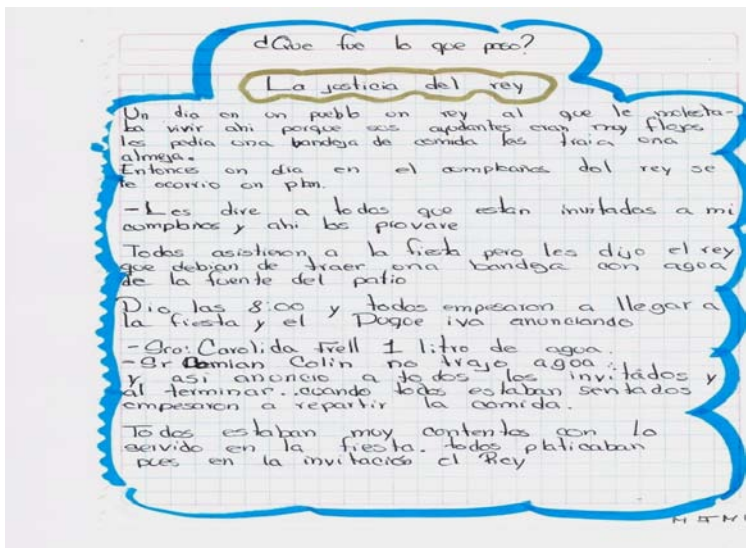 ¿Que fue lo que paso?
La justicia del rey
Un dia en un pueblo un rey al que le molesta-
ba vivir ahi porque sus ayudantes eran muy flojos
les pedia una bandeja de comida les traia una
almeja.
Entonces un dia en el cumpleaños del rey se
le ocorrio un plan.
-Les dire a todos que estan invitados a mi
cumplaños y ahi los provare
Todos asistieron a la fiesta pero les dijo el rey
que debian de traer una bandeja con agua
de la fuente del patio
Dio las 8:00 y todos empesaron a llegar a
la fiesta y el Duque iva anunciando
-Sra: Carolida Frell 1 litro de agua.
-Sr Damian Colin no trajo agua.
y asi anuncio a todos los invitados y
al terminar..cuando todos estaban sentados
empesaron a repartir la comida.
Todos estaban muy contentos con lo
servido en la fiesta. todos platicaban
pues en la invitación el Rey